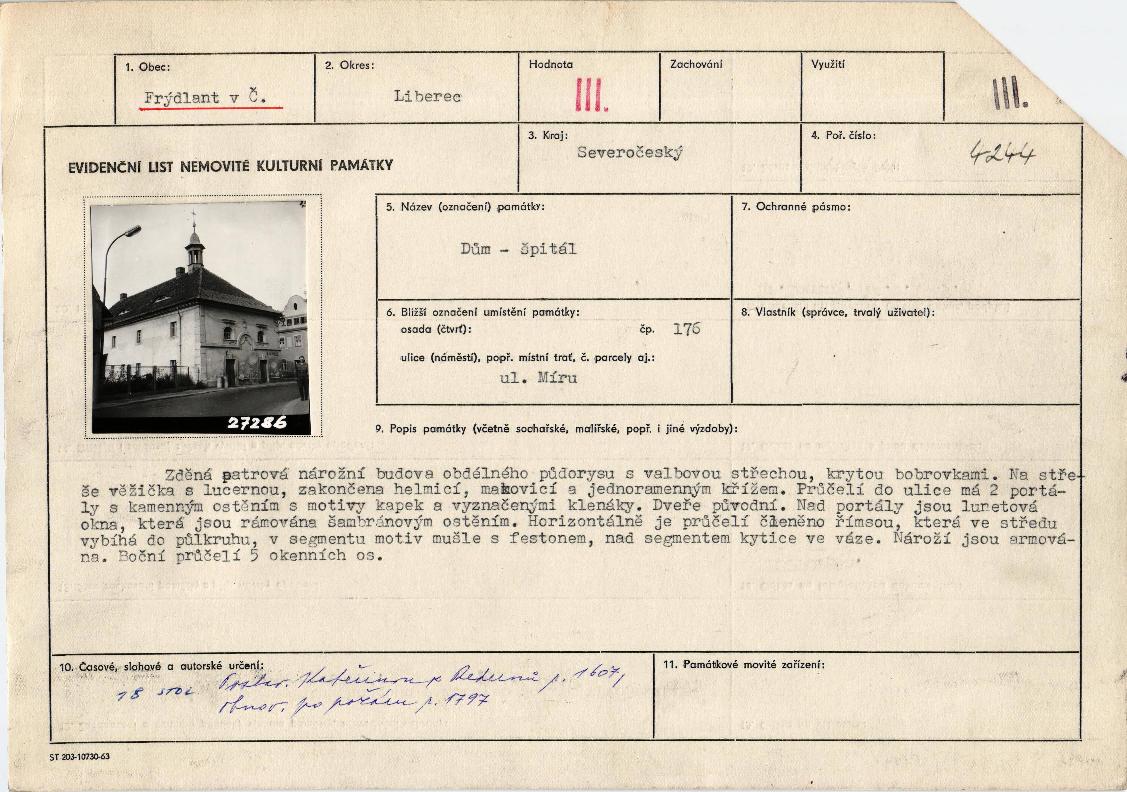 1. Obec:
Frýdlant v Č.
2. Okres:
Liberec
Hodnota
III.
Zachování
Využití
III.
EVIDENČNÍ LIST NEMOVITÉ KULTURNÍ PAMÁTKY
3. Kraj:
Severočeský
4. Poř. číslo:
4244
27286
5. Název (označení) památky:
Dům - špitál
7. Ochranné pásmo:
6. Bližší označení umístění památky:
osada (čtvrť): čp. 176
ulice (náměstí), popř. místní trať, č. parcely aj.:
ul. Míru
8. Vlastník (správce, trvalý uživatel):
9. Popis památky (včetně sochařské, malířské, popř. i jiné výzdoby):
Zděná patrová nárožní budova obdélného půdorysu s valbovou střechou, krytou bobrovkami. Na stře-
še věžička s lucernou, zakončena helmicí, makovicí a jednoramenným křížem. Průčelí do ulice má 2 portá-
ly s kamenným ostěním s motivy kapek a vyznačenými klenáky. Dveře původní. Nad portály jsou lunetová
okna, která jsou rámována šambránovým ostěním. Horizontálně je průčelí členěno římsou, která ve středu
vybíhá do půlkruhu, v segmentu motiv mušle s festonem, nad segmentem kytice ve váze. Nároží jsou armová-
na. Boční průčelí 5 okenních os.
10. Časové, slohové a autorské určení:
18 STOL Postav. Kateřinou z Redernů r. 1607,
obnov. po požáru r. 1797
11. Památkové movité zařízení:
ST 203-10730-63